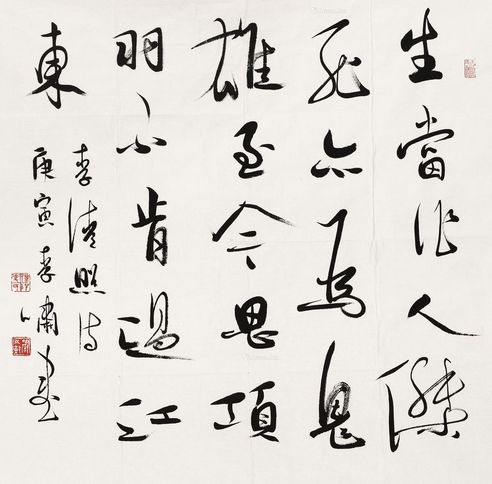 生當作人傑
死亦為鬼
雄至今思項
羽不肯過江
東
李清照詩
庚寅李嘯書